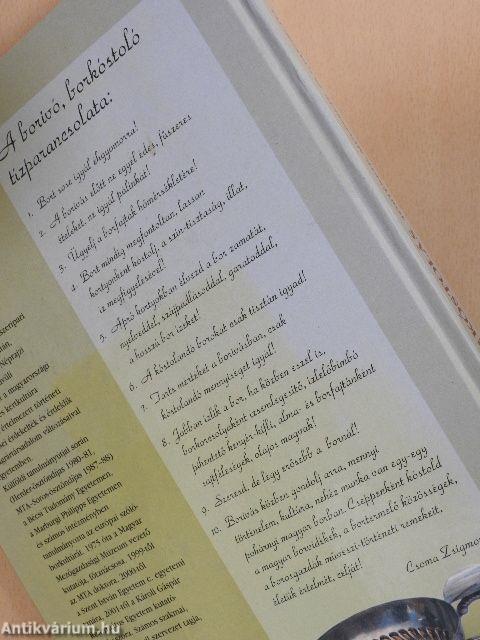 A borivó, borkóstoló
tízparancsolata:
1. Bort sose igyál éhgyomorra!
2. A borivás előtt ne egyél édes, fűszeres
ételeket, ne igyál pálinkát!
3. Ügyelj a borfajták hőmérsékletére!
4. Bort mindig megfontoltan, lassan
kortyonként kóstolj, a szín-tisztaság, illat,
íz megfigyelésével!
5. Apró kortyokban élvezd a bor zamatát,
nyelveddel, szájpadlásoddal, garatoddal,
a hosszú bor ízeket!
6. A kóstolandó borokat csak tisztán igyad!
7. Tarts mértéket a borivásban, csak
kóstolandó mennyiséget igyál!
8. Jobban ízlik a bor, ha közben eszel is,
borkorsolyaként csemlegesítő, ízlelőbimbó
pihentető kenyér-kifli, alma- és borfajtánként
sajtféleségek, olajos magvak!
9. Szeresd, de légy erősebb a bornál!
10. Borivás közben gondolj arra, mennyi
történelem, kultúra, nehéz munka van egy-egy
pohárnyi magyar borban. Cseppenként kóstold
a magyar borvidékek, a bortermelő közösségek,
a borosgazdák művészi-történeti remekeit,
életük értelmét, célját!
Csoma Zsigmo
szténpari
Néprajzi
a magyarországi
és kertkultúra
értelmezett történeti
bei érdekeltek és érdeklők
agrártársadalom változásai
egyetemben.
Külföldi tanulmányútjai során
(Herder-ösztöndíjas 1980-81,
MTA-Soros-ösztöndíjas 1987-88)
a Bécsi Tudomány Egyetemen,
a Marburgi Philipps Egyetemen
és számos intézményben
tanulmányozta az európai szőlő-
borkultúrát. 1975 óta a Magyar
Mezőgazdasági Múzeum vezető
kutatója, főtanácsosa. 1999-től
az MTA doktora, 2000-től
a Szent István Egyetem c. egyetemi
tanára, 2001-től a Károli Gáspár
Egyetem kutató-
Számos szakmai,
szervezet tagja,
Antikvárium.hu